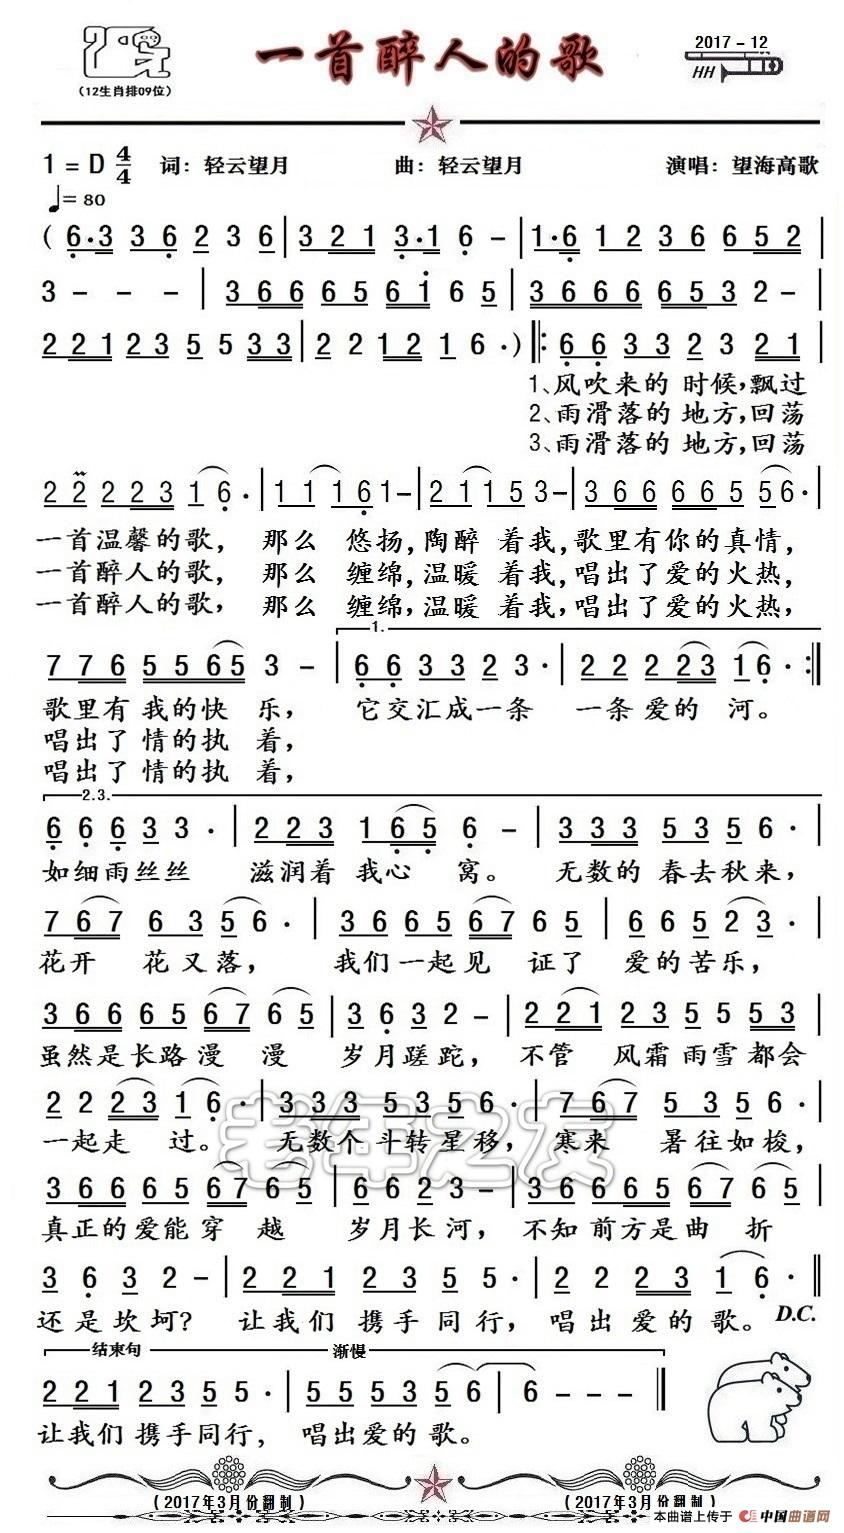 一首醉人的歌
2017 - 12
HH
(12生肖排09位)
1 = D 4/4 词: 轻云望月 曲: 轻云望月 演唱: 望海高歌
♩= 80
( 6·3 3 6 2 3 6 | 3 2 1 3·1 6 - | 1·6 1 2 3 6 6 5 2 |
3 - - - | 3 6 6 6 5 6 1 6 5 | 3 6 6 6 6 5 3 2 - |
2 2 1 2 3 5 5 3 3 | 2 2 1 2 1 6 · ) |: 6 6 3 3 2 3 2 1 |
1、风吹来的 时候,飘过
2、雨滑落的 地方,回荡
3、雨滑落的 地方,回荡
2 2 2 2 3 1 6 · | 1 1 1 1 6 1 - | 2 1 1 5 3 - | 3 6 6 6 6 5 5 6 · |
一首温馨的歌, 那么 悠扬,陶醉 着我,歌里有你的真情,
一首醉人的歌, 那么 缠绵,温暖 着我,唱出了爱的火热,
一首醉人的歌, 那么 缠绵,温暖 着我,唱出了爱的火热,
1.
7 7 6 5 5 6 5 3 - | 6 6 3 3 2 3 · | 2 2 2 2 3 1 6 · :|
歌里有 我的快 乐, 它交汇成一条 一条 爱的 河。
唱出了 情的执 着,
唱出了 情的执 着,
2.3.
6 6 6 3 3 · | 2 2 3 1 6 5 6 - | 3 3 3 5 3 5 6 · |
如细雨丝丝 滋润着 我心 窝。 无数的 春去秋来,
7 6 7 6 3 5 6 · | 3 6 6 5 6 7 6 5 | 6 6 5 2 3 · |
花开 花又落, 我们一起见 证了 爱的苦乐,
3 6 6 6 6 5 6 7 6 5 | 3 6 3 2 - | 2 2 1 2 3 5 5 5 3 |
虽然是长路漫 漫 岁月蹉跎, 不管 风霜雨雪都会
2 2 2 3 1 6 · | 3 3 3 5 3 5 6 · | 7 6 7 6 3 5 6 · |
一起走 过。 无数个 斗转星移, 寒来 暑往如梭,
老年之友
3 6 6 6 6 5 6 7 6 5 | 6 6 2 3 - | 3 6 6 6 6 5 6 7 6 5 |
真正的爱能穿 越 岁月长河, 不知前方是曲 折
3 6 3 2 - | 2 2 1 2 3 5 5 · | 2 2 2 3 1 6 · ‖
还是坎坷? 让我们 携手同行, 唱出 爱的歌。 D.C.
结束句 渐慢
2 2 1 2 3 5 5 · | 5 5 5 3 5 6 | 6 - - - ‖
让我们携手同行, 唱出爱的歌。
(2017年3月份翻制) (2017年3月份翻制)
本曲谱上传于 中国曲谱网